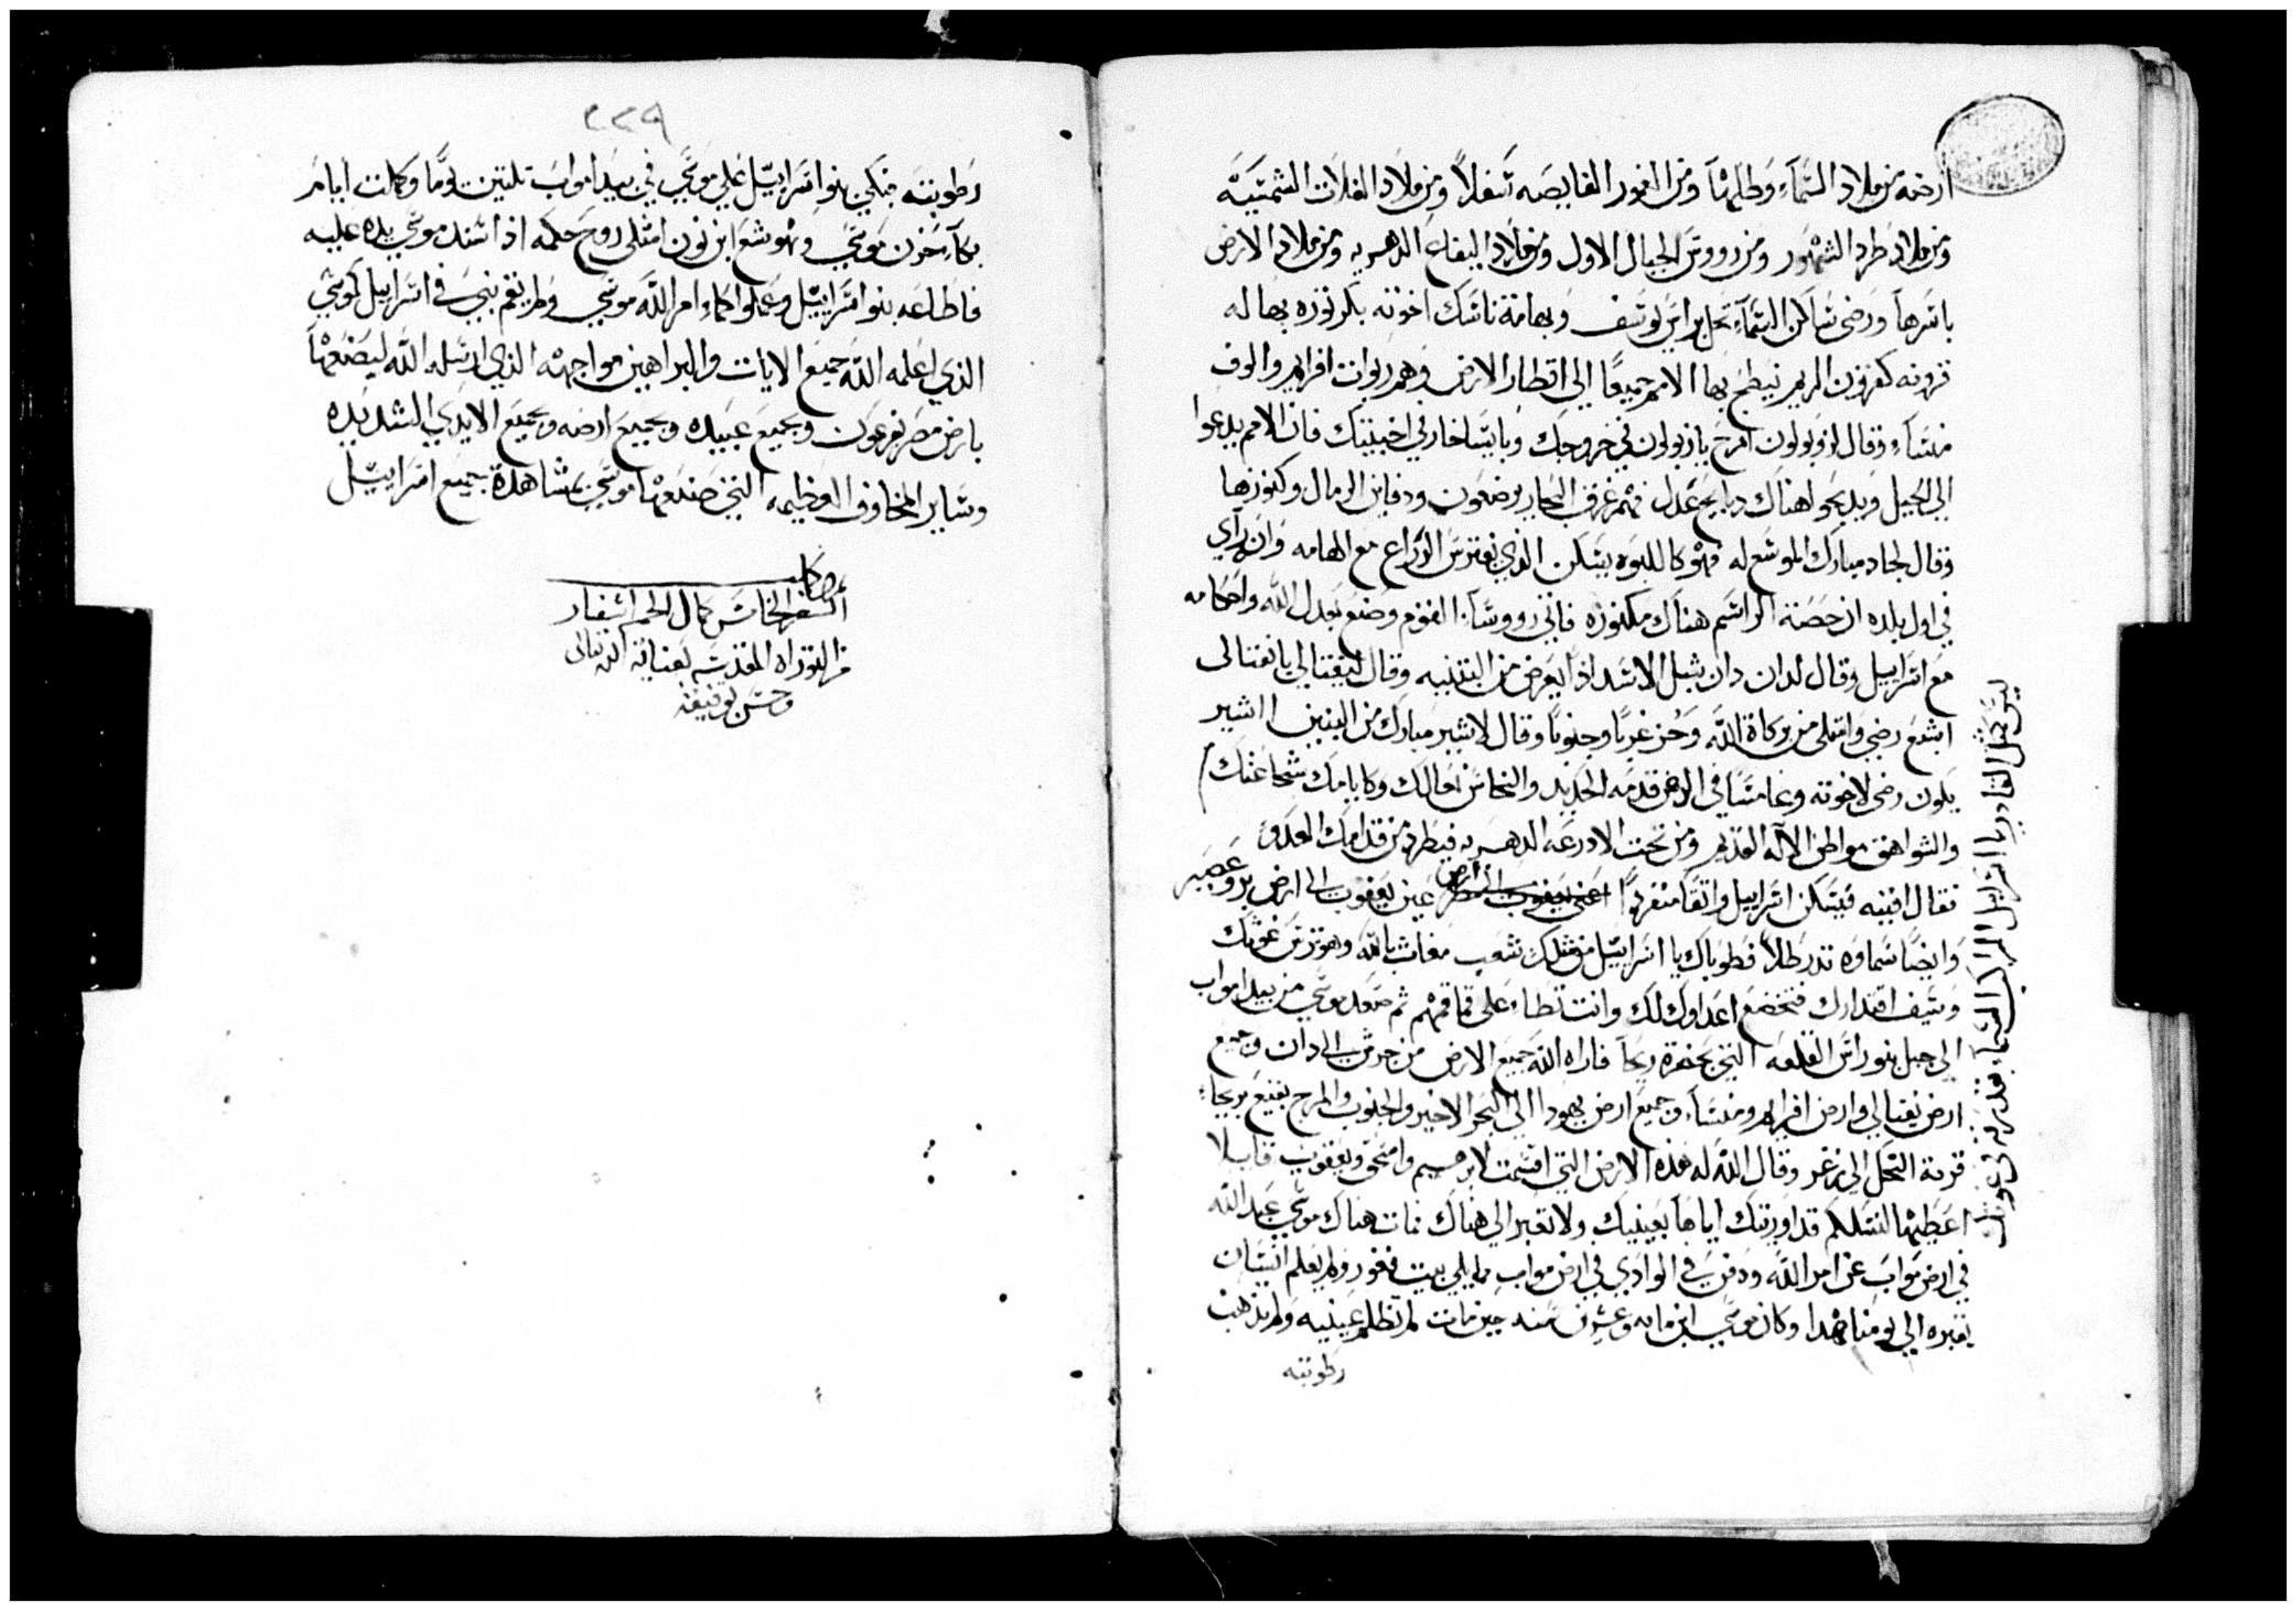 ارضه من ملاد السماء وطلها ومن الغمور الفايصه اسفلا ومن ملاد الغلات الشمسيه
ومن ملاد طرد الشهور ومن رووس الجبال الاول ومن ملاد اليفاع الدهريه ومن ملاد الارض
باسرها ورضى ساكن السماء تحل براس يوسف وبهامة ناسك اخوته بكر ثوره بها له
قرونه كقرون الريم نيطح بها الامم جميعا الى اقطار الارض وهم ربوات افرايم والوف
منساء وقال لزوبولون افرح يا زبولون في خروجك ويا يساخار في اخبيتك فان الامم يدعوا
الى الجبل ويدبحوا هناك دبايح عدل فهم غزف البحار يرضعون ودفاين الرمال وكنوزها
وقال لجاد مبارك الموسع له فهو كاللبوه يسكن الذي يفترس الدراع مع الهامه وان راي
في اول بلده ان حصنة الراسم هناك مكنوزه فاتى رووسا القوم وصنع بعدل الله واحكامه
مع اسراييل وقال لدان دان شبل الاسد اذا يعرض من البثنيه وقال لنفتالي يا نفتالى
اشبع رضى وامتلى من بركاة الله وحز غربا وجنوبا وقال لاشير مبارك من البنين اشير
يكون رضى لاخوته وغامسا في الدهن قدمه الحديد والنحاس نعالك وكايامك شجاعتك
والشواهق مواطن الاله القديم ومن تحت الادرعه الدهريه فيطرد من قدامك العدو
فقال افنيه فيسكن اسراييل واثقا منفردا عين يعقوب الى ارض بر وعصير
وايضا سماوه تدر طلا فطوباك يا اسراييل من مثلك شعب مغاث بالله وهو ترس غوثك
وسيف اقتدارك فتخضع اعداوك لك وانت تطاء على قماقمهم ثم صعد موسى من بيدا مواب
الى جبل بنو راس القلعه التي بحضرة ريحا فاراه الله جميع الارض من جرش الى دان وجميع
ارض نفتالي وارض افرايم ومنساء وجميع ارض يهودا الى البحر الاخير والجنوب والمرج بقيع يريحاء
قرية النحل الى زغر وقال الله له هذه الارض التي اقسمت لابرهيم واسحق ويعقوب قايلا
اعطيها لنسلكم قد اوريتك اياها بعينيك ولا تعبر الى هناك فمات هناك موسى عبد الله
في ارض مواب عن امر الله ودفن في الوادي في ارض مواب مما يلي بيت فغور ولم يعلم انسان
بقبره الى يومنا هدا وكان موسى ابن مايه وعشرين سنه حين مات لم تظلم عينيه ولم تذهب
رطوبته
ليس مثل القادر يا اسراييل الراكب السماء بقدرته في غوثك
٢٢٩
رطوبته فبكي بنو اسراييل على موسى في بيدا مواب تلتين يوما وكملت ايام
بكاء حزن موسى وهوشع ابن نون امتلى روح حكمه اذ اسند موسى يده عليه
فاطاعه بنو اسراييل وعملوا كما امر الله موسى ولم يقم نبي في اسراييل كموسى
الذي اعلمه الله جميع الايات والبراهين مواجهه الذي ارسله الله ليصنعها
بارض مصر بفرعون وبجميع عبيده وبجميع ارضه وبجميع الايدي الشديده
وساير المخاوف العظيمه التي صنعها موسى بمشاهدة جميع اسراييل
كمل
السفر الخامس كمال الخمس اسفار
من التوراه المقدسه بعناية الله تعالى
وحسن توفيقه